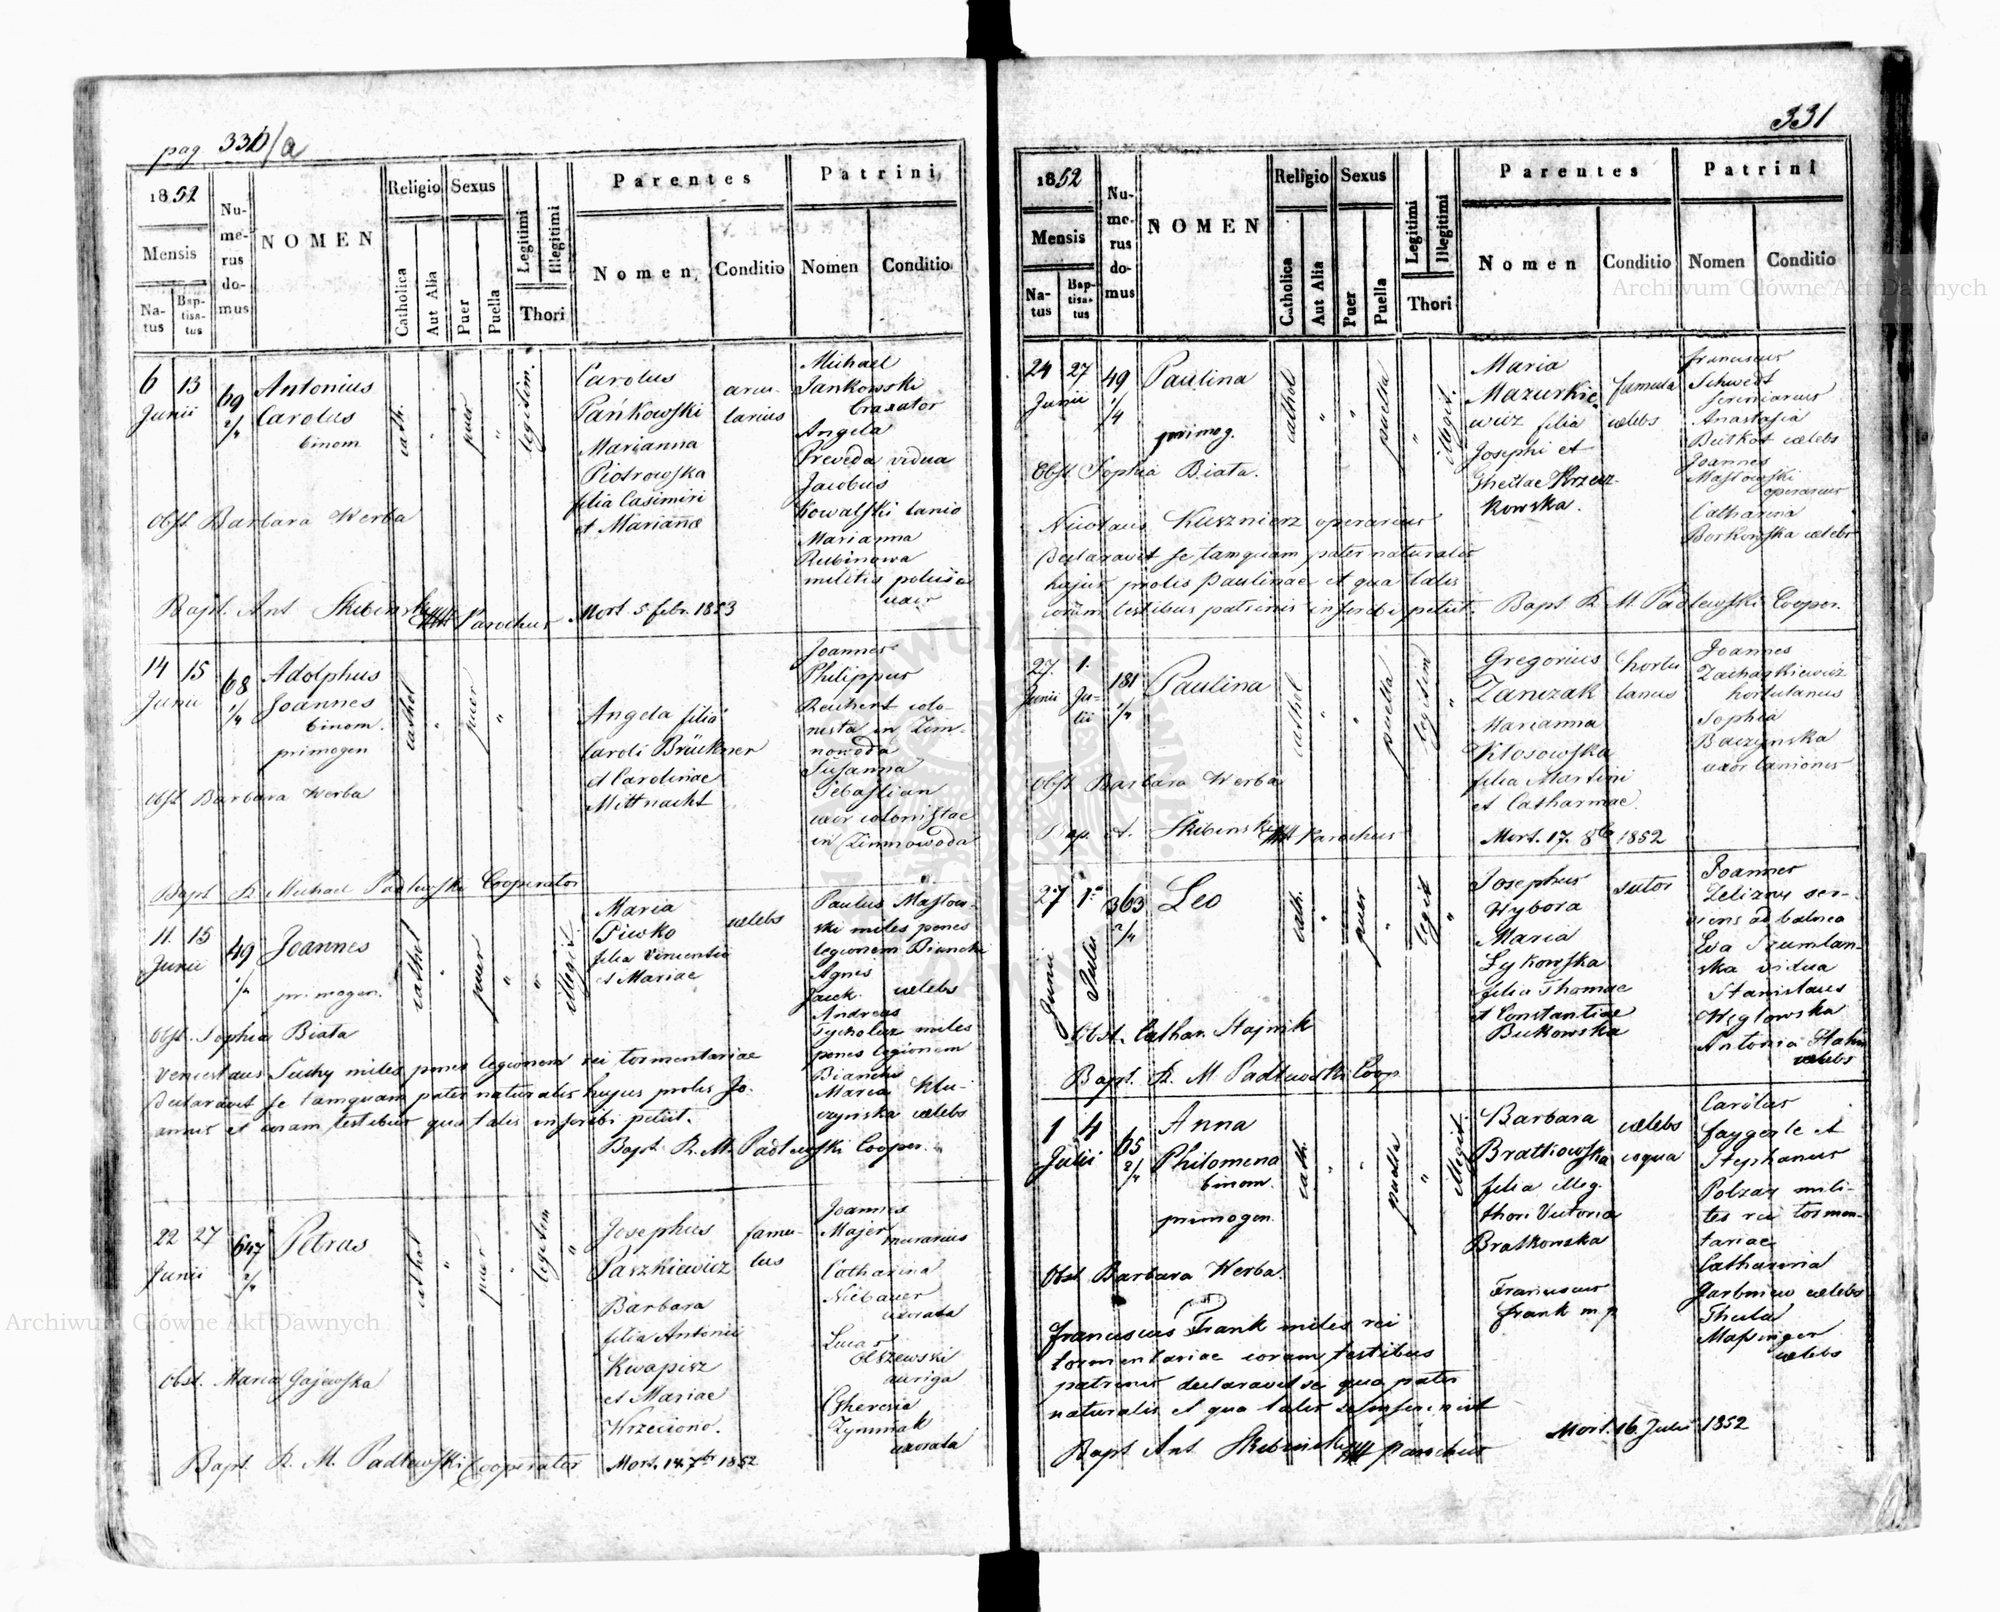 pag. 330/a
1852
Mensis
Natus
Baptisatus
Numerus domus
NOMEN
Religio
Catholica
Aut Alia
Sexus
Puer
Puella
Legitimi
Illegitimi
Thori
Parentes
Nomen
Conditio
Patrini
Nomen
Conditio
6 13
Junii
69
2/4
Antonius
Carolus
binom
cath.
puer
legitim.
Carolus
Pańkowski
Marianna
Piotrowska
filia Casimiri
et Mariannae
arcu-
larius
Michael
Jankowski
braxator
Angela
Preveda vidua
Jacobus
Kowalski lanio
Marianna
Rubinowa
militis
uxor
Obst. Barbara Werba
Bapt. Ant Skibinski Parochus
Mort. 5 febr. 1853
14 15
Junii
68
1/4
Adolphus
Joannes
binom.
primogen
cathol
puer
Angela filia
Caroli Brückner
et Carolinae
Mittnacht
Joannes
Philippus
Reichert colo-
nista in Zim-
nowoda
Susanna
Sebastian
uxor colonistae
in Zimnowoda
Obst. Barbara Werba
Bapt. R. Michael Padlewski Cooperator
11. 15
Junii
49
1/4
Joannes
primogen.
cathol
puer
illegit.
Maria
Piwko
filia Vincentii
et Mariae
caelebs
Paulus Masłow-
ski miles penes
legionem Bianchi
Agnes
Jaick caelebs
Andreas
miles
penes legionem
Bianchi
Maria Klu-
czyńska caelebs
Obst. Sophia Biała
Venceslaus Suchy miles penes legionem rei tormentariae
declaravit se tamquam pater naturalis hujus prolis Jo-
annis et coram testibus qua talis inscribi petiit.
Bapt. R. M. Padlewski Cooper.
22 27
Junii
647
2/4
Petrus
cathol
puer
legitim
Josephus
Paszkiewicz
Barbara
filia Antonii
Kwapisz
et Mariae
Wrzeciono.
famu-
lus
Joannes
Majer murarius
Catharina
Niebauer
uxorata
Lucas
Olszewski
auriga
Theresia
Zymniak
uxorata
Obst. Maria Gajewska
Bapt. R. M. Padlewski Cooperator
Mort. 14. 7br 1852
331
1852
Mensis
Natus
Baptisatus
Numerus domus
NOMEN
Religio
Catholica
Aut Alia
Sexus
Puer
Puella
Legitimi
Illegitimi
Thori
Parentes
Nomen
Conditio
Patrini
Nomen
Conditio
24 27
Junii
49
1/4
Paulina
primog.
cathol
puella
illegit.
Maria
Mazurkie-
wicz filia
Josephi et
Theclae Krzecz-
kowska.
famula
caelebs
Franciscus
Schwedt
Anastasia
Butkot caelebs
Joannes
Masłowski
operarius
Catharina
Borkowska caelebs
Obst. Sophia Biała.
Nicolaus Kusznierz operarius
declaravit se tamquam pater naturalis
hujus prolis Paulinae et qua talis
coram testibus patrinis inscribi petiit. Bapt R. M. Padlewski Cooper.
27. 1.
Junii Ju-
lii
181
1/4
Paulina
cathol
puella
legitim
Gregorius
Zanczak
Marianna
Kłosowska
filia Martini
et Catharinae
hortu
lanus
Joannes
Zacharkiewicz
hortulanus
Sophia
Baczynska
uxor lanionis
Obst. Barbara Werba
Bap. A. Skibinski Parochus
Mort. 17. 8b 1852
27 1a
Junii
Julii
363
2/4
Leo
cath.
puer
legit
Josephus
Wybora
Maria
Łykowska
filia Thomae
et Constantiae
Bukowska
sutor
Joannes
Zelizny ser-
viens ad balnea
Eva Szumlan-
ska vidua
Stanislaus
Węglowska
Antonia
caelebs
Obst. Cathar. Stajnik
Bapt. R. M Padlewski Coop
1 4
Julii
65
2/4
Anna
Philomena
binom.
primogen.
cath.
puella
illegit.
Barbara
Bratkowska
filia illeg.
thori Victoria
Bratkowska
caelebs
coqua
Carolus
Faygerle et
Stephanus
Polzay mili-
tes rei tormen-
tariae
Catharina
Garbmiew caelebs
Thecla
Massinger
caelebs
Obst Barbara Werba.
Franciscus
Frank m.p
Franciscus Frank miles rei
tormentariae coram testibus
patrinis declaravit se qua pater
naturalis et qua talis
Bapt Ant Skibinski parochus
Mort. 16. Julii 1852
Archiwum Główne Akt Dawnych
Archiwum Główne Akt Dawnych